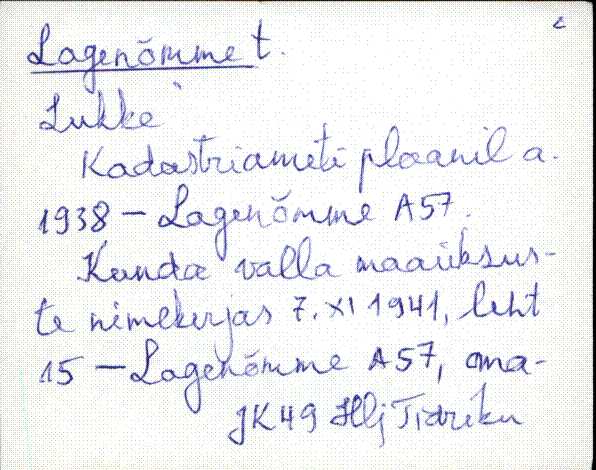 Lagenõmme t.
Lukke
Kadastriameti plaanil a.
1938 – Lagenõmme A57.
Kunda valla maaüksus-
te nimekirjas 7. XI 1941, leht
15 – Lagenõmme A57, oma-
JK49 Hlj Tidriku